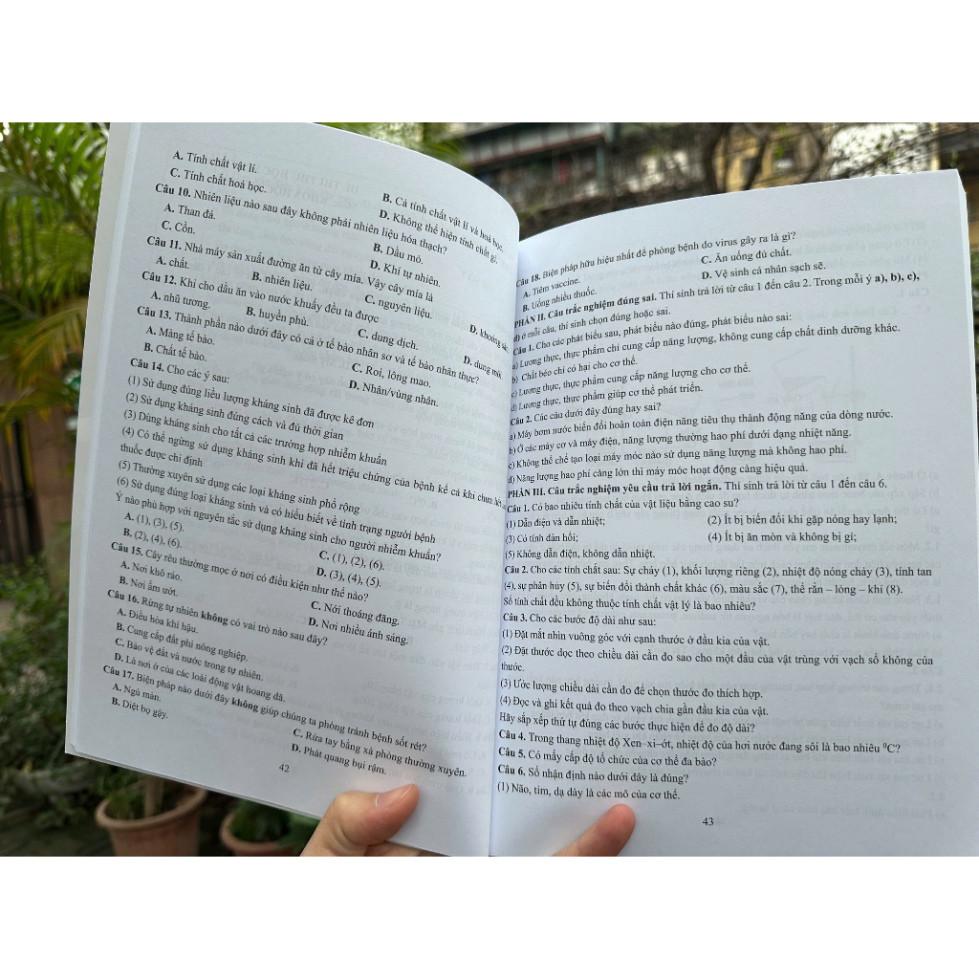 A. Tính chất vật lí.
B. Cả tính chất vật lí và hoá học.
C. Tính chất hoá học.
D. Không thể hiện tính chất gì.
Câu 10. Nhiên liệu nào sau đây không phải nhiên liệu hóa thạch?
A. Than đá.
B. Dầu mỏ.
C. Cồn.
D. Khí tự nhiên.
Câu 11. Nhà máy sản xuất đường ăn từ cây mía. Vậy cây mía là
A. chất.
B. nhiên liệu.
C. nguyên liệu.
D. khoáng
Câu 12. Khi cho dầu ăn vào nước khuấy đều ta được
A. nhũ tương.
B. huyền phù.
C. dung dịch.
D. dung môi.
Câu 13. Thành phần nào dưới đây có cả ở tế bào nhân sơ và tế bào nhân thực?
A. Màng tế bào.
C. Roi, lông mao.
B. Chất tế bào.
D. Nhân/vùng nhân.
Câu 14. Cho các ý sau:
(1) Sử dụng đúng liều lượng kháng sinh đã được kê đơn
(2) Sử dụng kháng sinh đúng cách và đủ thời gian
(3) Dùng kháng sinh cho tất cả các trường hợp nhiễm khuẩn
(4) Có thể ngừng sử dụng kháng sinh khi đã hết triệu chứng của bệnh kể cả khi chưa hết
thuốc được chỉ định
(5) Thường xuyên sử dụng các loại kháng sinh phổ rộng
(6) Sử dụng đúng loại kháng sinh và có hiểu biết về tình trạng người bệnh
Ý nào phù hợp với nguyên tắc sử dụng kháng sinh cho người nhiễm khuẩn?
A. (1), (3), (5).
C. (1), (2), (6).
B. (2), (4), (6).
D. (3), (4), (5).
Câu 15. Cây rêu thường mọc ở nơi có điều kiện như thế nào?
A. Nơi khô ráo.
C. Nơi thoáng đãng.
B. Nơi ẩm ướt.
D. Nơi nhiều ánh sáng.
Câu 16. Rừng tự nhiên không có vai trò nào sau đây?
A. Điều hòa khí hậu.
B. Cung cấp đất phi nông nghiệp.
C. Bảo vệ đất và nước trong tự nhiên.
D. Là nơi ở của các loài động vật hoang dã.
Câu 17. Biện pháp nào dưới đây không giúp chúng ta phòng tránh bệnh sốt rét?
A. Ngủ màn.
C. Rửa tay bằng xà phòng thường xuyên.
B. Diệt bọ gậy.
D. Phát quang bụi rậm.
42
Câu 18. Biện pháp hữu hiệu nhất để phòng bệnh do virus gây ra là gì?
A. Tiêm vaccine.
C. Ăn uống đủ chất.
B. Uống nhiều thuốc.
D. Vệ sinh cá nhân sạch sẽ.
PHẦN II. Câu trắc nghiệm đúng sai. Thí sinh trả lời từ câu 1 đến câu 2. Trong mỗi ý a), b), c),
d) ở mỗi câu, thí sinh chọn đúng hoặc sai.
Câu 1. Cho các phát biểu sau, phát biểu nào đúng, phát biểu nào sai:
a) Lương thực, thực phẩm chỉ cung cấp năng lượng, không cung cấp chất dinh dưỡng khác.
b) Chất béo chỉ có hại cho cơ thể.
c) Lương thực, thực phẩm cung cấp năng lượng cho cơ thể.
d) Lương thực, thực phẩm giúp cơ thể phát triển.
Câu 2. Các câu dưới đây đúng hay sai?
a) Máy bơm nước biến đổi hoàn toàn điện năng tiêu thụ thành động năng của dòng nước.
b) Ở các máy cơ và máy điện, năng lượng thường hao phí dưới dạng nhiệt năng.
c) Không thể chế tạo loại máy móc nào sử dụng năng lượng mà không hao phí.
d) Năng lượng hao phí càng lớn thì máy móc hoạt động càng hiệu quả.
PHẦN III. Câu trắc nghiệm yêu cầu trả lời ngắn. Thí sinh trả lời từ câu 1 đến câu 6.
Câu 1. Có bao nhiêu tính chất của vật liệu bằng cao su?
(1) Dẫn điện và dẫn nhiệt;
(2) Ít bị biến đổi khi gặp nóng hay lạnh;
(3) Có tính đàn hồi;
(4) Ít bị ăn mòn và không bị gỉ;
(5) Không dẫn điện, không dẫn nhiệt.
Câu 2. Cho các tính chất sau: Sự cháy (1), khối lượng riêng (2), nhiệt độ nóng chảy (3), tính tan
(4), sự phân hủy (5), sự biến đổi thành chất khác (6), màu sắc (7), thể rắn – lỏng – khí (8).
Số tính chất đều không thuộc tính chất vật lý là bao nhiêu?
Câu 3. Cho các bước đo độ dài như sau:
(1) Đặt mắt nhìn vuông góc với cạnh thước ở đầu kia của vật.
(2) Đặt thước dọc theo chiều dài cần đo sao cho một đầu của vật trùng với vạch số không của
thước.
(3) Ước lượng chiều dài cần đo để chọn thước đo thích hợp.
(4) Đọc và ghi kết quả đo theo vạch chia gần đầu kia của vật.
Hãy sắp xếp thứ tự đúng các bước thực hiện để đo độ dài?
Câu 4. Trong thang nhiệt độ Xen–xi–ớt, nhiệt độ của hơi nước đang sôi là bao nhiêu ⁰C?
Câu 5. Có mấy cấp độ tổ chức của cơ thể đa bào?
Câu 6. Số nhận định nào dưới đây là đúng?
(1) Não, tim, dạ dày là các mô của cơ thể.
43